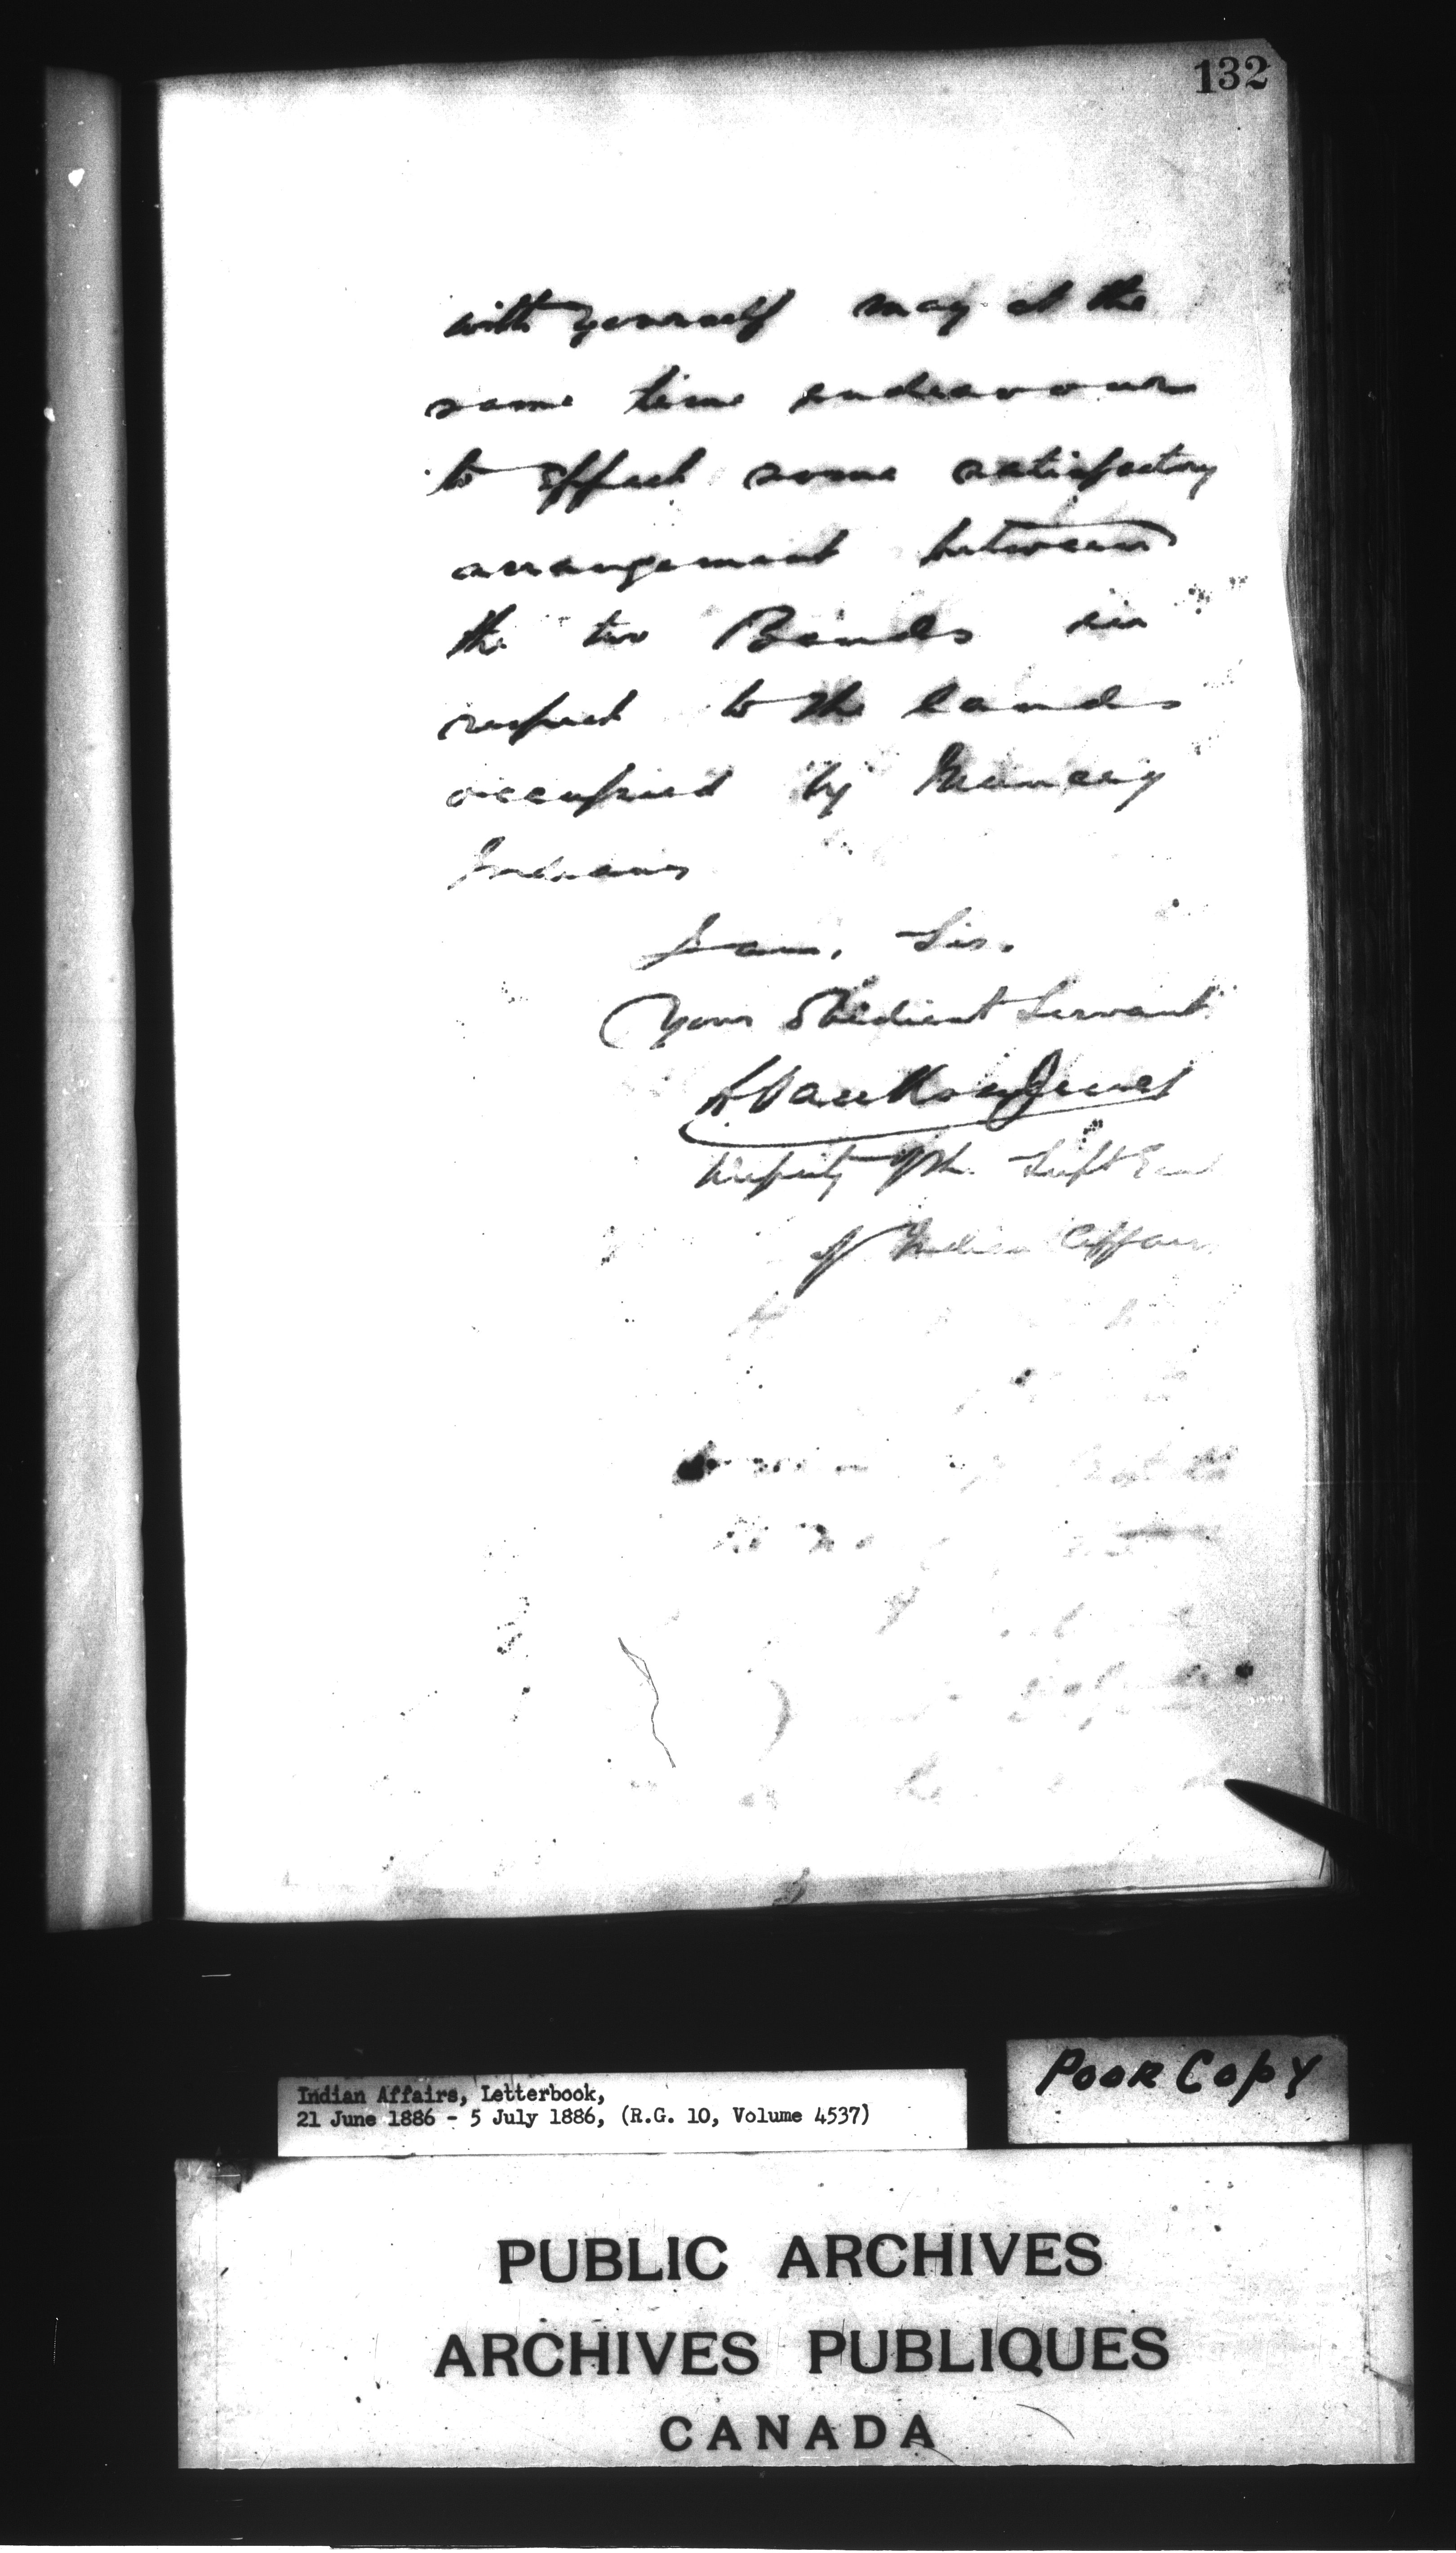 132
with yourself may at the
same time endeavour
to effect some satisfactory
arrangement between
the two Bands in
respect to the lands
occupied by Muncey
Indians
I am, Sir.
Your Obedient Servant
L VanKoughnet
Deputy of the Supt Gen
of Indian Affairs
Indian Affairs, Letterbook,
21 June 1886 - 5 July 1886, (R.G. 10, Volume 4537)
POOR COPY
PUBLIC ARCHIVES
ARCHIVES PUBLIQUES
CANADA